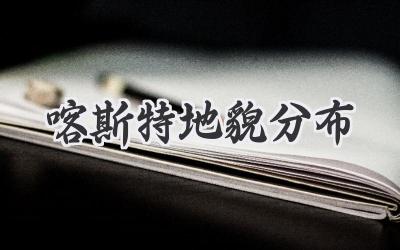 喀斯特地貌分布